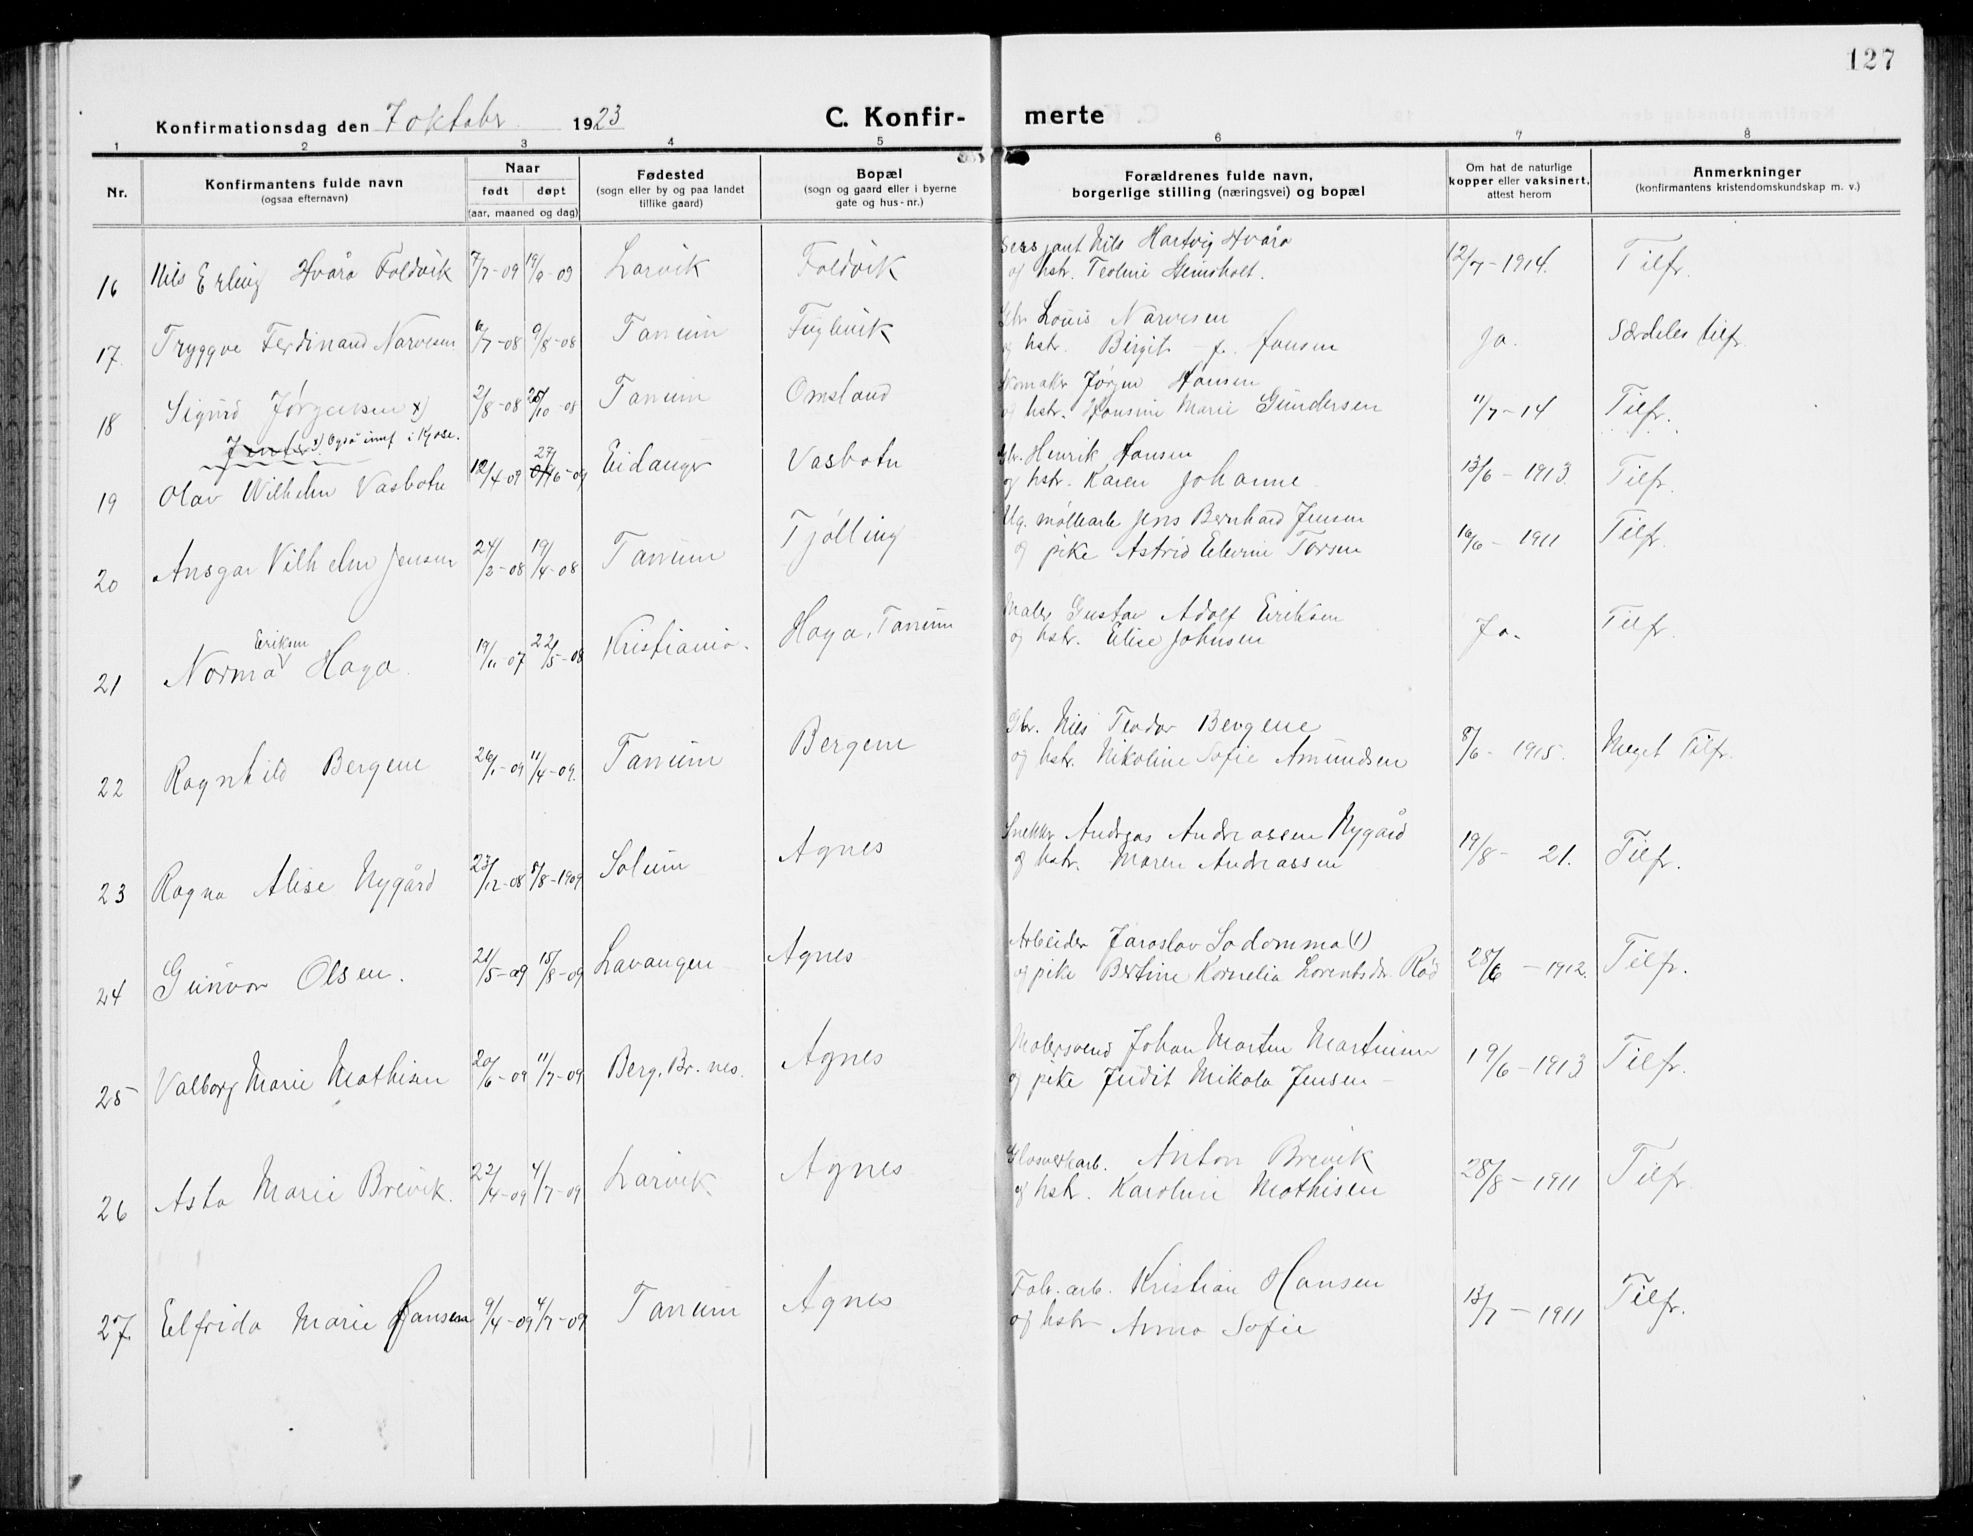 127
Konfirmationsdag den 7 oktobr 1923 C. Konfir- merte
1 2 3 4 5 6 7 8
Nr. Konfirmantens fulde navn (ogsaa efternavn) Naar født døpt (aar, maaned og dag) Fødested (sogn eller by og paa landet tillike gaard) Bopæl (sogn og gaard eller i byerne gate og hus-nr.) Forældrenes fulde navn, borgerlige stilling (næringsvei) og bopæl Om hat de naturlige kopper eller vaksinert, attest herom Anmerkninger (konfirmantens kristendomskundskap m. v.)
16 Nils Erling Hvåra Foldvik 7/7-09 19/9-09 Larvik Foldvik Sersjant Nils Hartvig Hvåra 12/7-1914. Tilfr.
og hstr. Teoline Grimsholt.
17. Tryggve Ferdinand Narvesen 6/7-08 9/8-08 Tanum Fuglevik Gbr Louis Narvesen Ja. Særdeles tilfr.
og hstr. Birgit f. Jansen
18 Sigurd Jørgensen x) 2/8-08 25/10-08 Tanum Omsland Skomaker Jørgen Hansen 11/7-14 Tilfr.
og hstr. Hansine Marie Gundersen
x) Også innf i Kjose.
19 Olav Wilhelm Vasbotn 12/4 09 27/6-09 Eidanger Vasbotn Gbr. Henrik Hansen 13/6-1913. Tilfr.
og hstr. Karen Johanne
20 Ansgar Vilhelm Jensen 24/2-08 19/4-08 Tanum Tjølling Ug. møllearb Jens Bernhard Jensen 16/6-1911 Tilfr.
og pike Astrid Elevine Torsen
21 Norma Eriksen Haga. 19/11-07 22/5-08 Kristiania. Haga, Tanum Maler Gustav Adolf Eriksen Ja. Tilfr.
og hstr. Elise Johnsen
22 Ragnhild Bergene 26/1-09 11/4-09. Tanum Bergene Gbr. Nils Teodor Bergene 8/6-1915. Meget Tilfr.
og hstr. Nikoline Sofie Amundsen
23 Ragna Alise Nygård 23/12-08 8/8-1909 Solum Agnes Snekker Andreas Andreassen Nygård 19/8-21. Tilfr.
og hstr. Maren Andreassen
24 Gunvor Olsen. 21/5-09 15/8-09 Lavangen Agnes Arbeider Jaroslav Sadomma (!) 28/6-1912. Tilfr.
og pike Bertine Kornelia Lorentsdr. Rød
25 Valborg Marie Mathisen 20/6-09 11/7-09 Berg. Br. nes. Agnes Malersvend Johan Morten Martinsen 19/6-1913 Tilfr.
og pike Judit Mikola Jensen -
26 Asta Marie Brevik. 22/4-09 4/7-09 Larvik Agnes Glasverkarb. Anton Brevik 28/8-1911 Tilfr.
og hstr. Karoline Mathisen
27. Elfrida Marie Hansen 9/4-09 4/7-09 Tanum Agnes Fabr.arb. Kristian Hansen 13/7-1911 Tilfr.
og hstr Anna Sofie